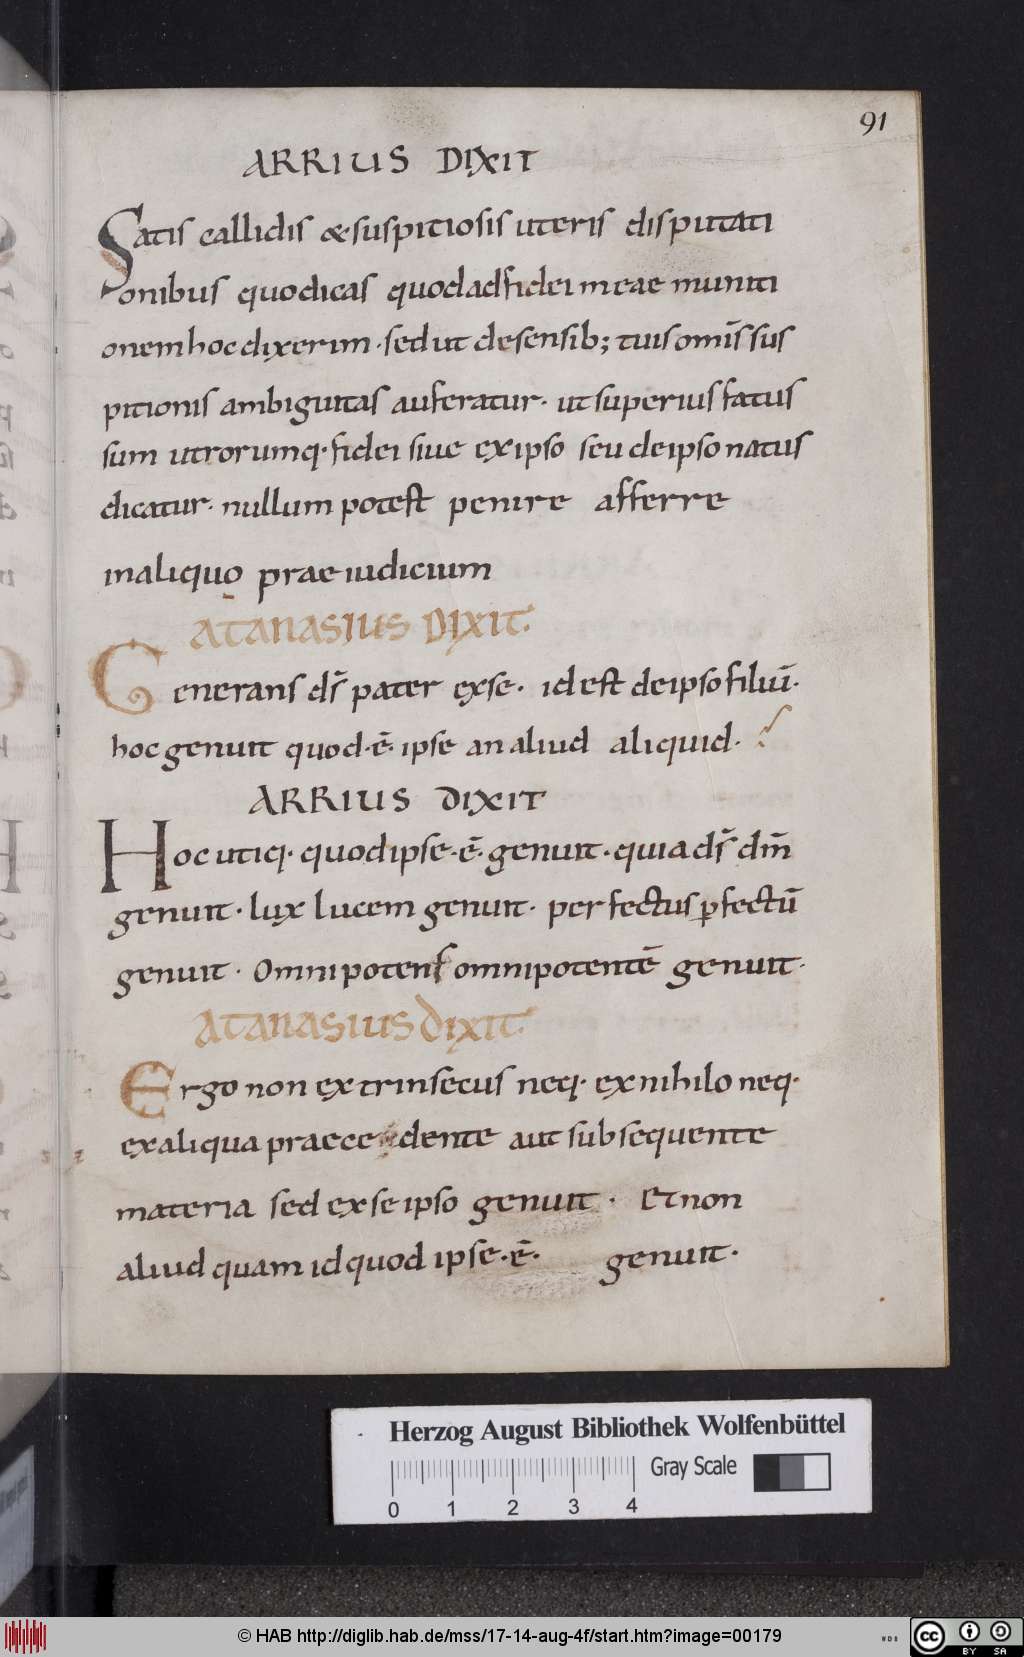 91
ARRIUS DIXIT
Satis callidis & suspitiosis uteris disputati
onibus quodicas quodadfidei meae muniti
onem hoc dixerim · sed ut desensib; tuis omīs sus
pitionis ambiguitas auferatur · ut superius fatus
sum utrorumq· fidei siue ex ipso seu deipso natus
dicatur · nullum potest penire afferre
inaliquo praeiudicium
ATANASIUS DIXIT·
Generans ds̄ pater exse · id est deipso filiū·
hoc genuit quod · ē· ipse an aliud aliquid ·
ARRIUS DIXIT
Hoc utiq· quod ipse · ē· genuit · quia ds̄ dm̄
genuit · lux lucem genuit · perfectus ꝑfectū
genuit · Omnipotens omnipotentē genuit·
ATANASIUS DIXIT·
Ergo non extrinsecus neq· ex nihilo neq·
exaliqua praece dente aut subsequente
materia sed exse ipso genuit · Et non
aliud quam id quod ipse · ē· genuit ·
Herzog August Bibliothek Wolfenbüttel
Gray Scale
0 1 2 3 4
© HAB http://diglib.hab.de/mss/17-14-aug-4f/start.htm?image=00179
WDB
cc BY SA